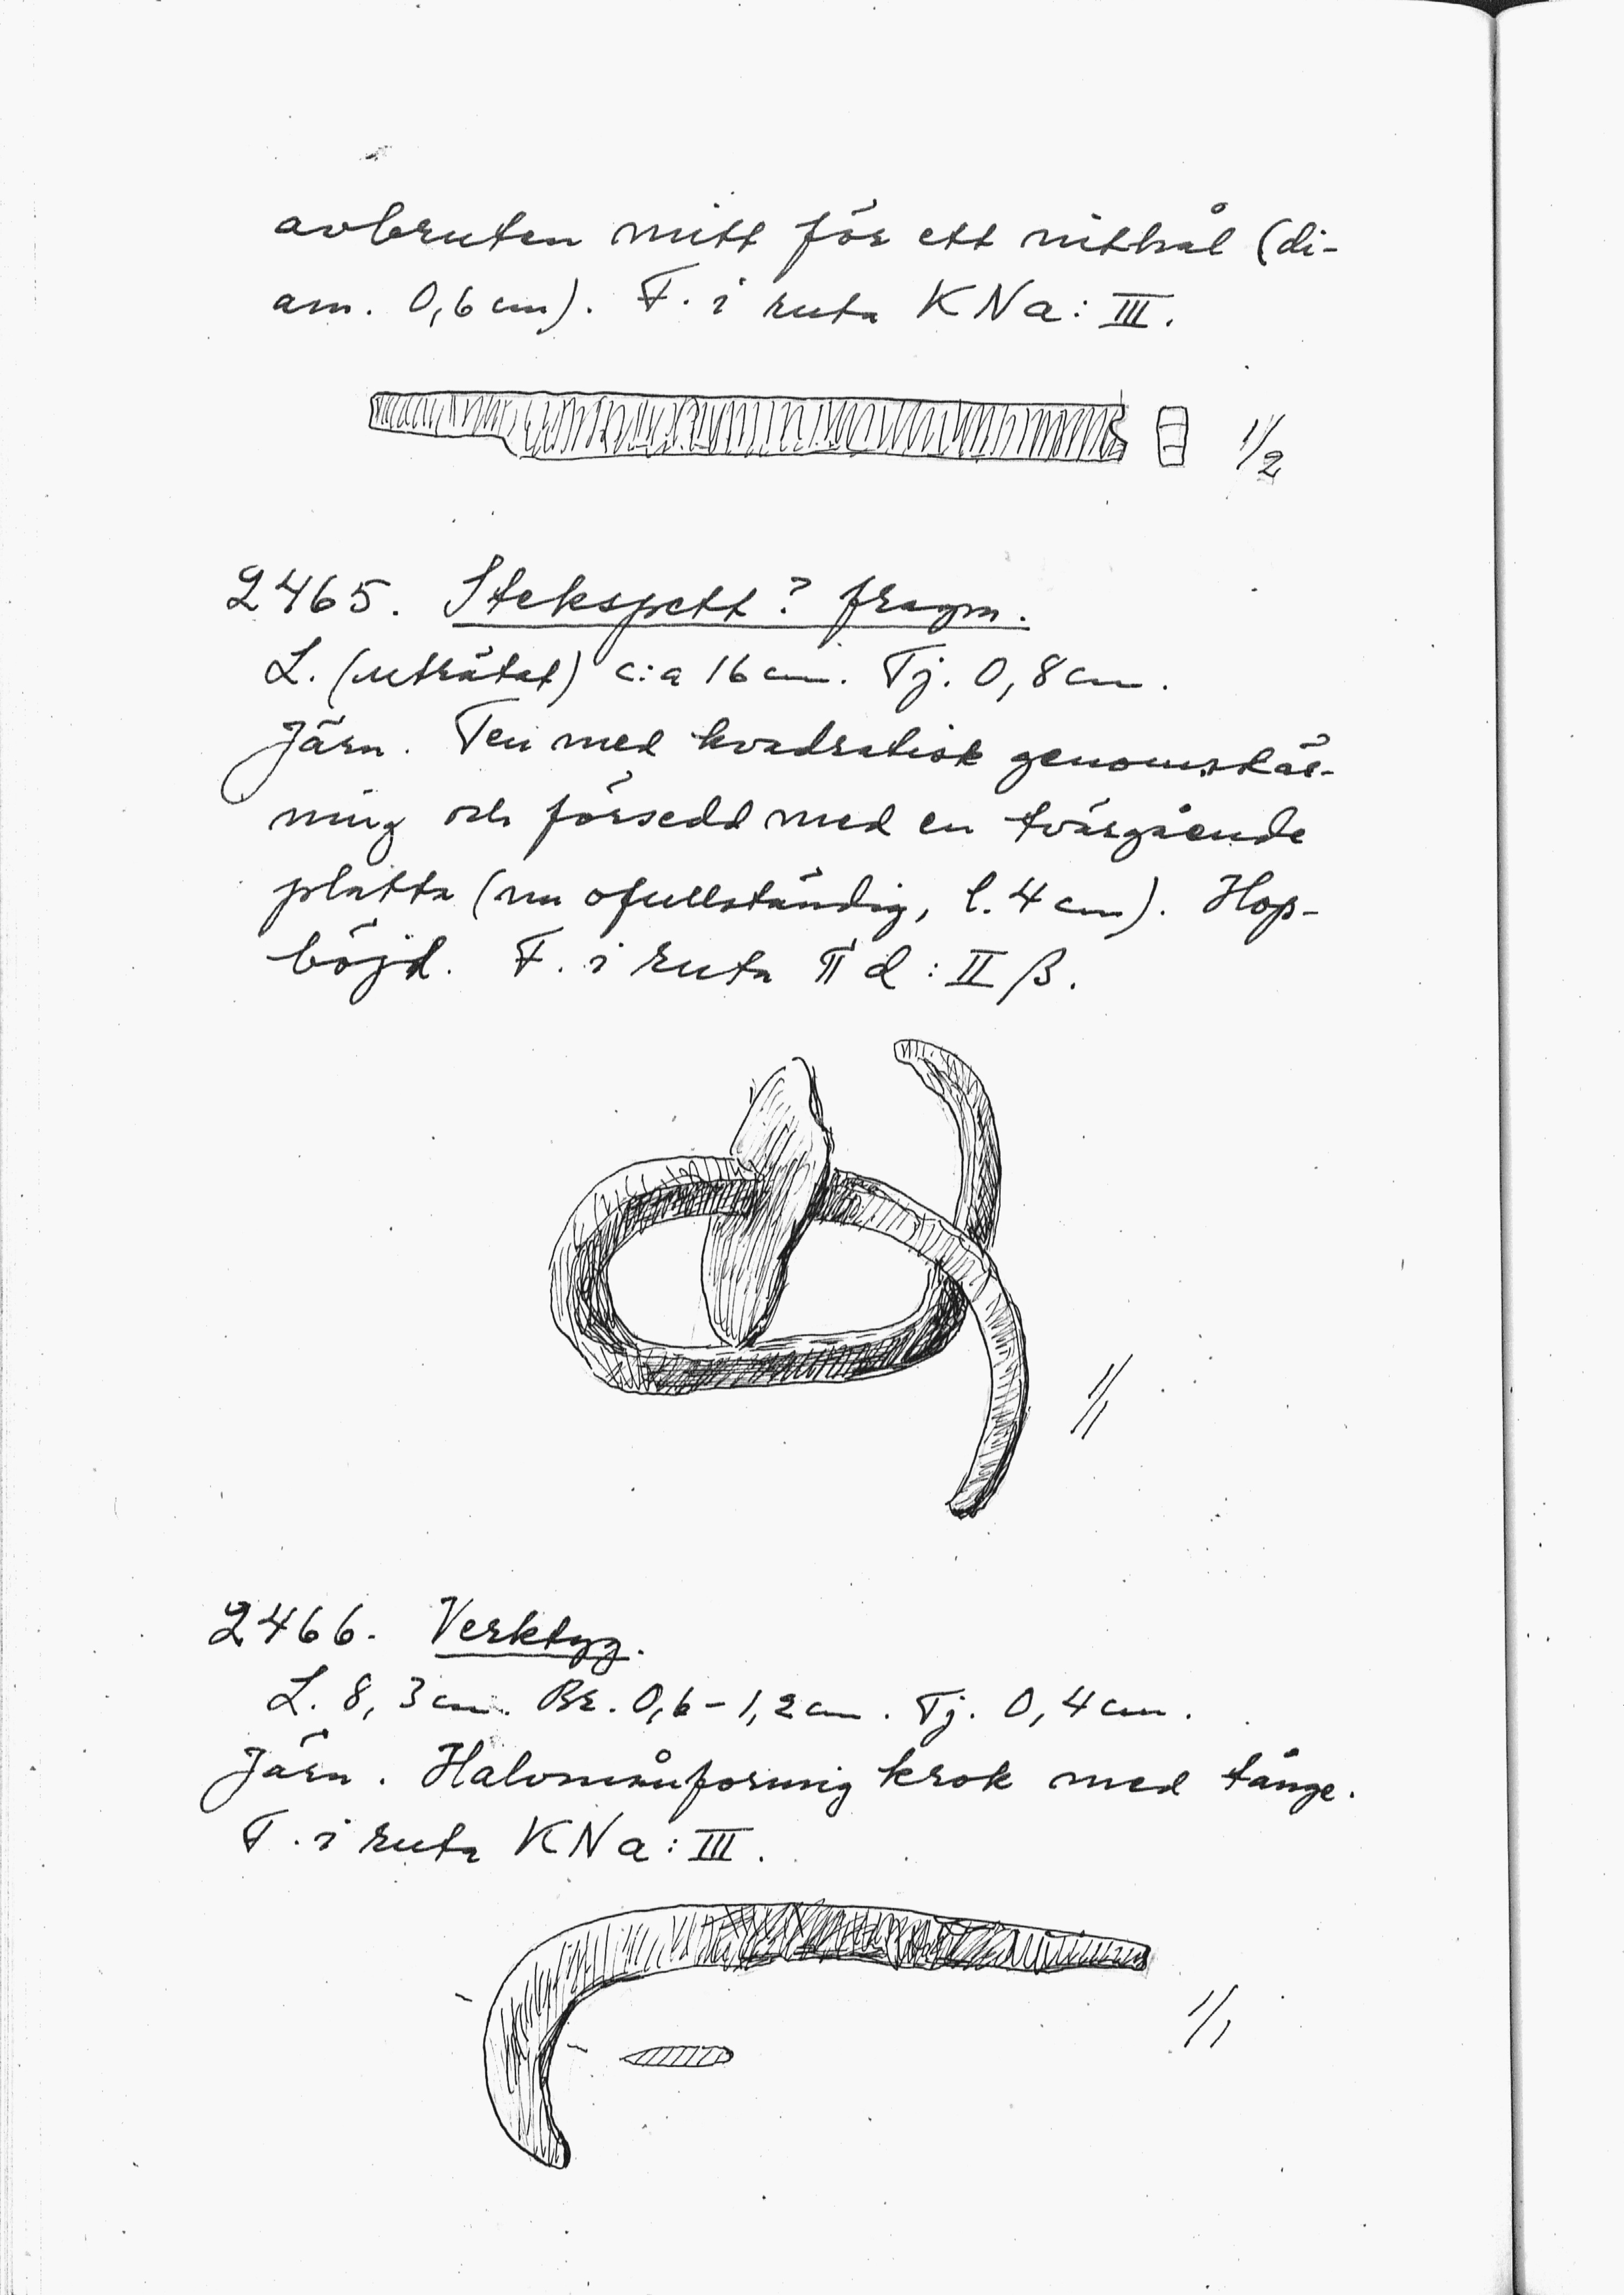 avbruten mitt för ett nithål (di-
am. 0,6 cm). F. i ruta KNa: III.
1/2
2465. Stekspett? fragm.
L. (uträtat) c:a 16 cm. Tj. 0,8 cm.
Järn. Ten med kvadratisk genomskär-
ning och försedd med en tvärgående
platta (nu ofullständig, l. 4 cm). Hop-
böjd. F. i ruta π d: II β.
1/1
2466. Verktyg.
L. 8,3 cm. Br. 0,6-1,2 cm. Tj. 0,4 cm.
Järn. Halvmånformig krok med tånge.
F. i ruta KNa: III.
1/1